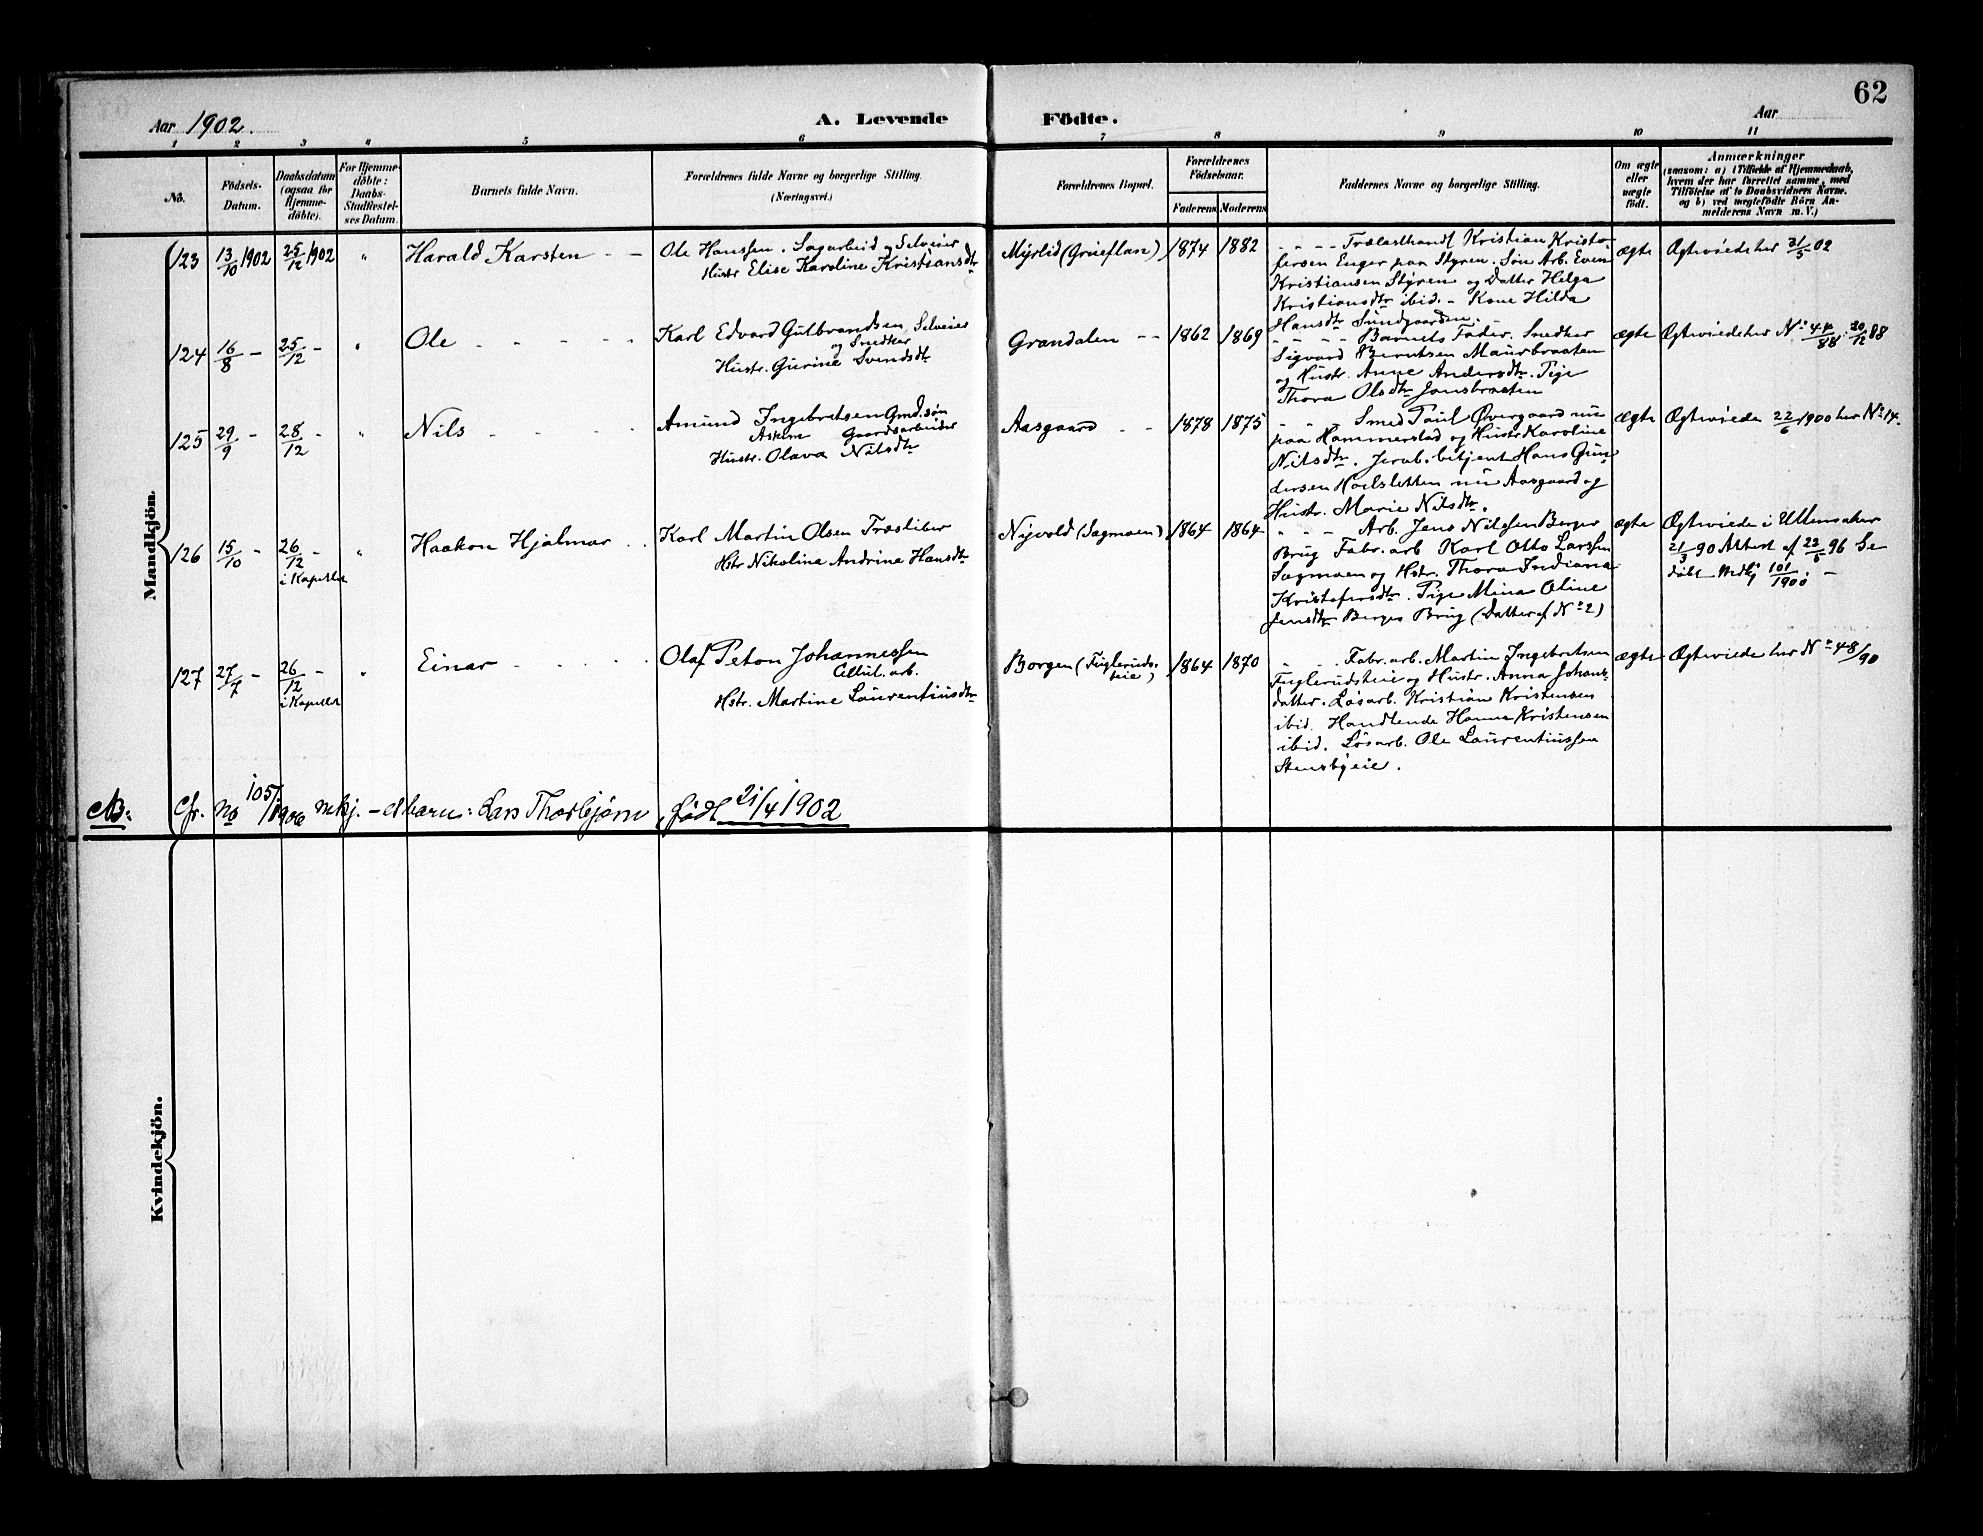 62
Aar 1902. A. Levende Födte. Aar
1 2 3 4 5 6 7 8 9 10 11
No.
Födsels-
Datum.
Daabsdatum
(ogsaa for
Hjemme-
döbte).
For Hjemme-
döbte:
Daabs-
Stadfæstel-
ses Datum.
Barnets fulde Navn.
Forældrenes fulde Navne og borgerlige Stilling.
(Næringsvei.)
Forældrenes Bopæl.
Forældrenes
Födselsaar.
Faderens Moderens
Faddernes Navne og borgerlige Stilling.
Om ægte
eller
uægte
födt.
Anmærkninger
(saasom: a) i Tilfælde af Hjemmedaab,
hvem der har forrettet samme, med
Tilföielse af to Daabsvidners Navne.
og b) ved uægtefödte Börn An-
melderens Navn m. V.)
Mandkjön.
123 13/10 1902 25/12 1902 " Harald Karsten - -
Ole Hanssen. Sagarbeid og Selveier
Hustr Elise Karoline Kristiansdtr
Myrlid (Grueflan) 1874 1882
- - - - Trælasthandl Kristian Kristo-
fersen Enger paa Styren. Søn Arb. Even
Kristiansen Styren og Datter Helga
Kristiansdtr ibid. - Kone Hilda
Hansdtr Sundgaarden.
ægte Ægteviede her 31/5 02
124 16/8 - 25/12 - " Ole - - - - -
Karl Edvard Gulbrandsen, Selveier
og Snedker
Hustr. Gurine Svendsdtr
Grandalen - - 1862 1869
- - - - Barnets Fader. Snedker
Sigvard Berntsen Maurbraaten
og Hustr. Anne Andersdtr. Pige
Thora Olsdtr Jonsbraaten
ægte Ægteviede her No 44/88 : 20/12 88
125 29/9 - 28/12 - " Nils - - - -
Amund Ingebretsen Gmd.søn
Askim Gaardsarbeider
Hustr. Olava Nilsdtr
Aasgaard - - 1878 1875
- - - Smed Paul Øvergaard nu
paa Hammerstad og Hustr Karoline
Nilsdtr. Jernb. betjent Hans Gun-
dersen Hoelsletten nu Aasgaard og
Hustr. Marie Nilsdtr.
ægte Ægteviede 22/6 1900 her No 14.
126 15/10 - 26/12 - " Haakon Hjalmar - -
i Kapellet
Karl Martin Olsen Træsliber
Hstr Nikolina Andrina Hansdtr
Nyvold (Sagmoen) 1864 1864
- - - Arb. Jens Nilssen Berger
Brug Fabr. arb Karl Otto Larssen
Sagmoen og Hstr. Thora Indiana
Kristofersdtr. Pige Mina Oline
Jensdtr Berger Brug (Datter af No 2)
ægte Ægteviede i Ullensaker
21/3 90 Attest af 23/6 96 Se
døbt Mdkj 101/1900 : -
127 27/7 - 26/12 - " Einar - - - - -
i Kapellet
Olaf Peton Johannessen
Cellul. arb.
Hstr. Martine Laurentiusdtr
Borgen (Fugleruds-
eie) 1864 1870
- - - Fabr. arb. Martin Ingebretsen
Fuglerudseie og Hustr. Anna Johans-
datter. Løsarb. Kristian Kristensen
ibid. Handlende Hanna Kristensen
ibid. Løsarb. Ole Laurentiussen
Stensbyeie.
ægte Ægteviede her No 48/90
NB: Cfr. No 105/1906 mkj. - et barn: Lars Thorbjørn, født 21/4 1902
Kvindekjön.